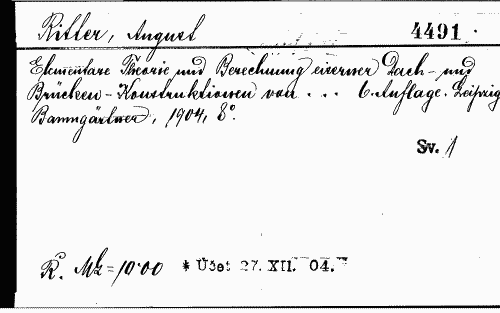 Ritter, August 4491.
Elementare Theorie und Berechnung eiserner Dach- und
Brücken-Konstruktionen von ... 6. Auflage. Leipzig
Baumgärtner, 1904, 8°.
Sv. 1
K. Mk = 10·00 * Účet 27. XII. 04.